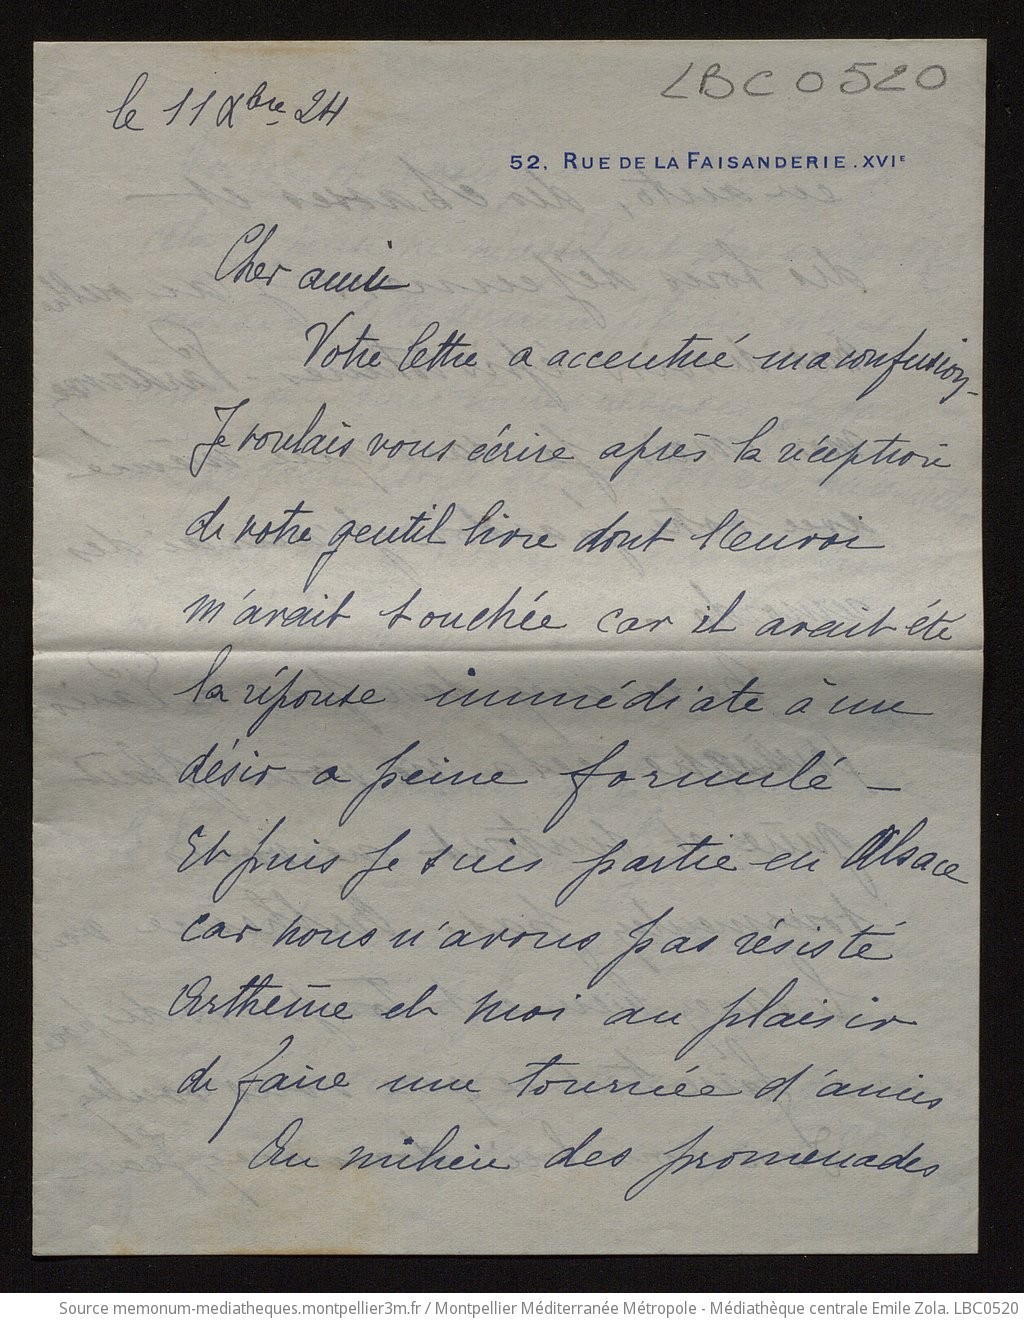 le 11 Xbre 24
LBC0520
52, RUE DE LA FAISANDERIE. XVIE
Cher ami
Votre lettre a accentué ma confusion_
Je voulais vous écrire après la réception
de votre gentil livre dont l'envoi
m'avait touchée car il avait été
la réponse immédiate à un
désir a peine formulé _
Et puis je suis partie en Alsace
car nous n'avons pas résisté
Arthème et moi au plaisir
de faire une tournée d'amis
Au milieu des promenades
Source memonum-mediatheques.montpellier3m.fr / Montpellier Méditerranée Métropole - Médiathèque centrale Emile Zola. LBC0520